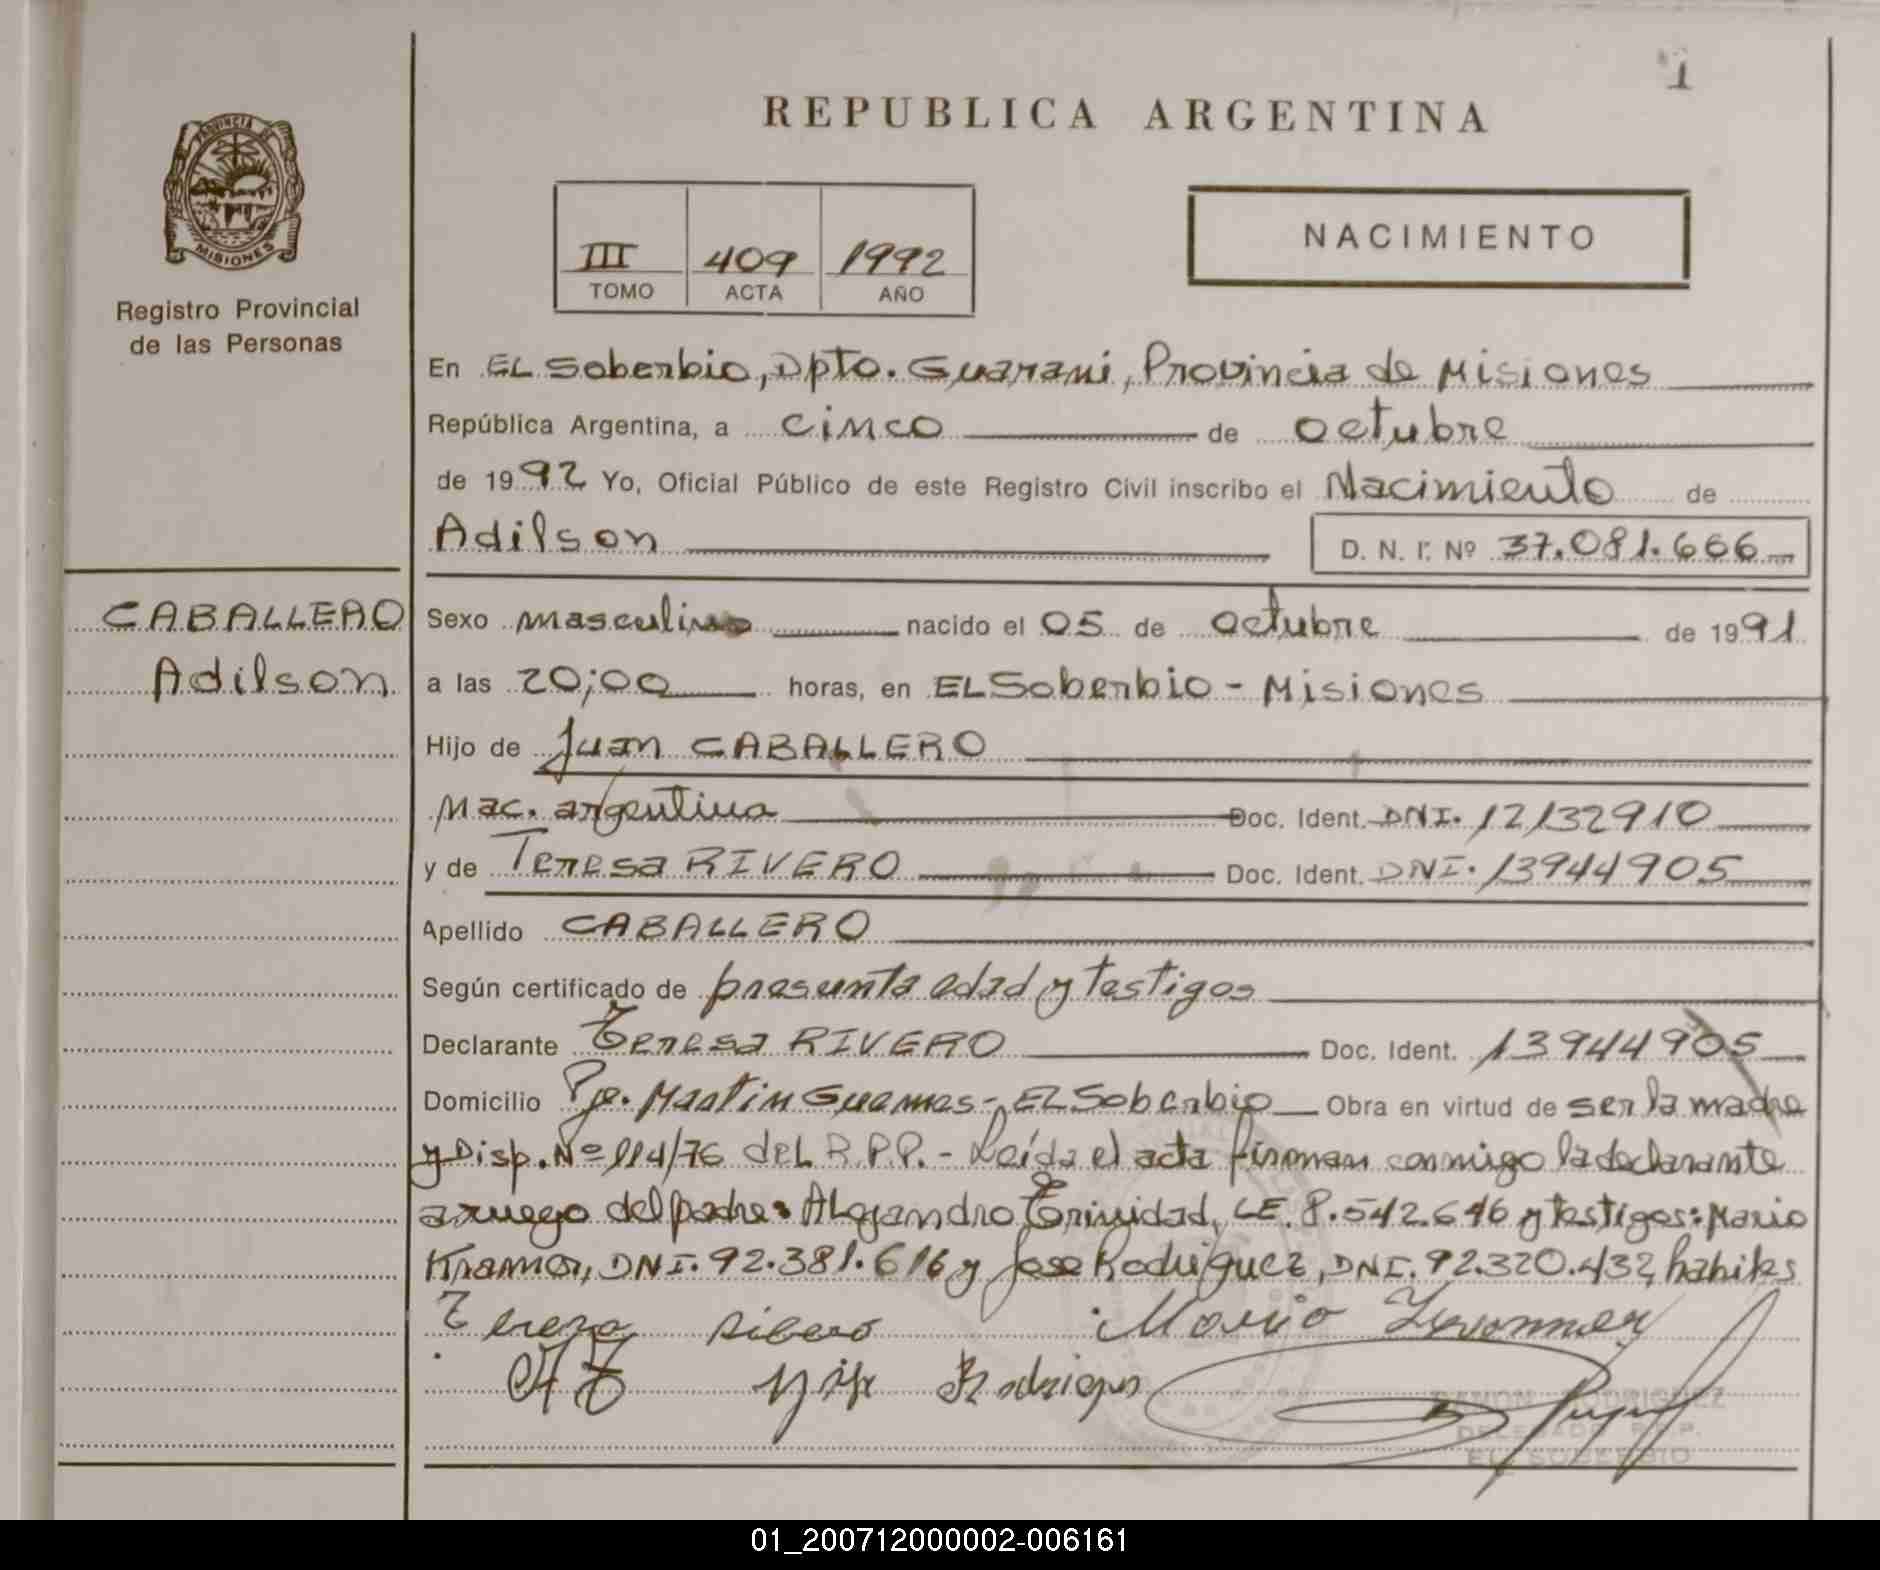 1
REPUBLICA ARGENTINA
PROVINCIA DE
MISIONES
Registro Provincial
de las Personas
III 409 1992
TOMO ACTA AÑO
NACIMIENTO
En EL Soberbio, Dpto. Guarani, Provincia de Misiones
República Argentina, a cinco de octubre
de 1992 Yo, Oficial Público de este Registro Civil inscribo el Nacimiento de
Adilson D. N. I. Nº 37.081.666
CABALLERO
Adilson
Sexo masculino nacido el 05 de octubre de 1991
a las 20;00 horas, en EL Soberbio - Misiones
Hijo de Juan CABALLERO
Nac. argentina Doc. Ident. DNI. 12132910
y de Teresa RIVERO Doc. Ident. DNI. 13944905
Apellido CABALLERO
Según certificado de presunta edad y testigos
Declarante Teresa RIVERO Doc. Ident. 13944905
Domicilio Pje. Martin Guemes - EL Soberbio Obra en virtud de ser la madre
y Disp. Nº 114/76 del R.P.P. - Leída el acta firman conmigo la declarante
a ruego del padre: Alejandro Trinidad, LE. 8.542.646 y testigos: Mario
Kramer, DNI. 92.381.616 y Jose Rodriguez, DNI. 92.320.432, habiles
Tereza Ribero Mario
AT Rodrigues
RAMON RODRIGUEZ
DELEGADO R.P.P.
EL SOBERBIO
01_200712000002-006161